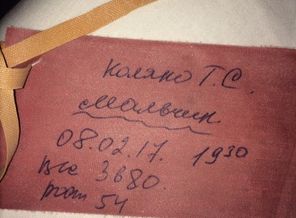 Коляно Т. С.
мальчик.
08.02.17. 1930
Вес 3680.
рост 54